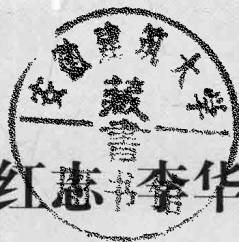 安徽建筑大学
藏
書
红志 李华